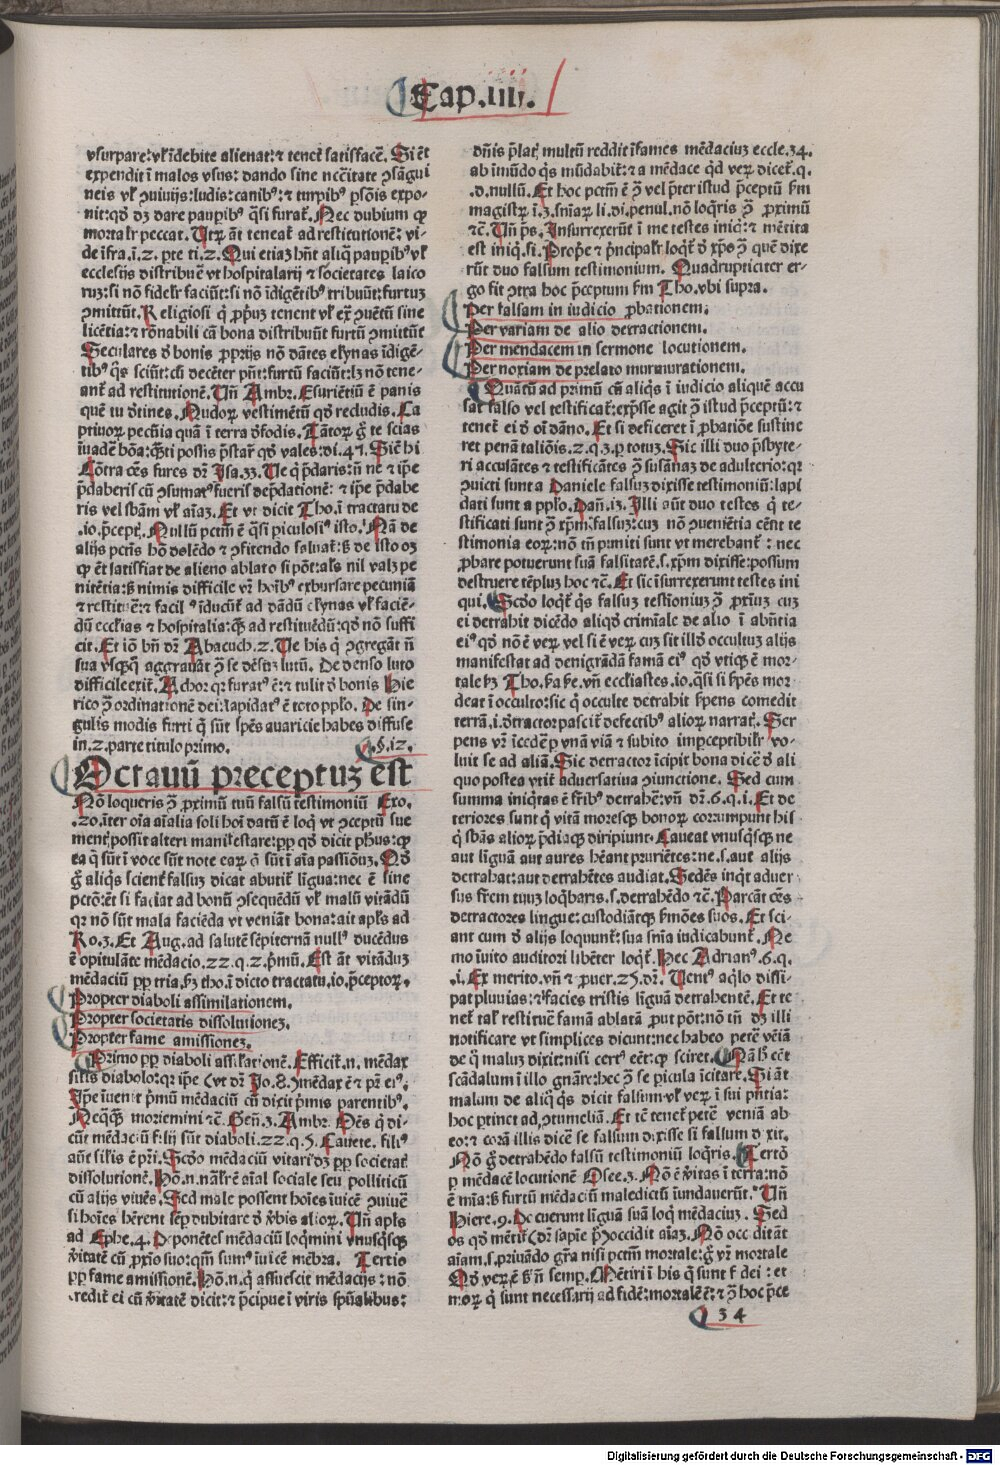 Cap.iiii.
vsurpare: vl̃ ĩdebite alienat: ⁊ tenet̃ satisfacẽ. Si ẽt
expendit ĩ malos vsus: dando sine necc̃itate ꝯsãgui
neis vl̃ ꝯuiuijs: ludis: canibꝰ: ⁊ turpibꝰ ꝑsõis expo-
nit: qð dꝫ dare pauꝑibꝰ q̃si furat̃. Nec dubium ꝙ
mortal̃r peccat. Utꝝ ãt teneat̃ ad restitutionẽ: vi-
de ĩfra. ĩ. 2. ꝑte ti. 2. Qui etiaꝫ hñt aliq̃ pauꝑibꝰ vl̃
ecclesijs distribuẽ vt hospitalarij ⁊ societates laico
ruꝫ: si nõ fidel̃r faciũt: si nõ ĩdigẽtibꝰ tribuũt: furtuꝫ
ꝯmittũt. Religiosi q̃ ꝓp̃uꝫ tenent vl̃ exp̃ ꝯuẽtũ sine
licẽtia: ⁊ rõnabili cã bona distribuũt furtũ ꝯmittũt
Seculares ð bonis ꝓprijs nõ dãtes elẽynas ĩdigẽ-
tibꝰ q̃s sciũt: cũ decẽter pñt: furtũ faciũt: lꝫ nõ tene-
ant̃ ad restitutionẽ. Uñ Ambr. Esuriẽtiũ ẽ panis
quẽ tu ðtines. Nudoꝝ vestimẽtũ qð recludis. Ca
ptiuoꝝ pecũia quã ĩ terra ðfodis. Tãtoꝝ g̃ te scias
ĩuadẽ bõa: q̃ti possis p̃star̃ qð vales: di. 47. Siẽ hi
Cõtra cẽs fures dr̃ Isa. 33. Ue q̃ p̃daris: ñ ne ⁊ ip̃e
p̃daberis cũ ꝯsumatꝰ fueris dep̃dationẽ: ⁊ ip̃e p̃dabe
ris vel sbãm vl̃ aĩaꝫ. Et vt dicit Tho. ĩ tractatu de
.io. p̃cept̃. Nullũ pctm̃ ẽ q̃si piculosiꝰ isto. Nã de
alijs pctĩs hõ dolẽdo ⁊ ꝯfitendo saluat̃: ß de isto oꝫ
ꝙ ẽt satisfiat de alieno ablato si põt: als̃ nil valꝫ pe
nitẽtia: ß nimis difficile vr̃ hoĩbꝰ exbursare pecuniã
⁊ restituẽ: ⁊ faciliꝰ ĩducũt̃ ad dãdũ elẽynas vl̃ faciẽ-
dũ ecclias ⁊ hospitalia: q̃ꝫ ad restituẽdũ: qð nõ suffi
cit. Et iõ bñ dr̃ Abacuch. 2. Ue his q̃ ꝯgregãt ñ
sua vsq̃q̃ aggrauãt ꝯ̃ se dẽsuꝫ lutũ. De denso luto
difficile exit̃. Achor qꝛ furatꝰ ẽ: ⁊ tulit ð bonis Hie
rico ꝯ̃ ordinationẽ dei: lapidatꝰ ẽ toto pp̃lo. De sin-
gulis modis furti q̃ sũt spẽs auaricie habes diffuse
in. 2. parte titulo primo. .§. iz.
Octauũ preceptuꝫ est
Nõ loqueris ꝯ̃ proximũ tuũ falsũ testimoniũ Exo.
.20. ĩter oĩa aĩalia soli hoĩ datũ ẽ loq̃ vt ꝯceptũ sue
ment̃ possit alteri manifestare: ꝓp qð dicit ph̃us: ꝙ
ea q̃ sũt ĩ voce sũt note eaꝝ q̃ sũt ĩ aĩa passiõuꝫ. Qñ
g̃ aliq̃s scient̃ falsuꝫ dicat abutit̃ lĩgua: nec ẽ sine
pctõ: ẽt si faciat ad bonũ ꝯsequẽdũ vl̃ malũ vitãdũ
qꝛ nõ sũt mala faciẽda vt veniãt bona: ait apl̃s ad
Ro. 3. Et Aug. ad salutẽ sẽpiternã nullꝰ ducẽdus
ẽ opitulãte mẽdacio. 22. q. 2. p̃mũ. Est ãt vitãduꝫ
mẽdaciũ ꝓp tria. ẜꝫ tho. ĩ dicto tractatu. io. p̃ceptoꝝ.
Propter diaboli assimilationem.
Propter societatis dissolutioneꝫ.
Propter fame amissioneꝫ.
Primo ꝓp diaboli assil̃ationẽ. Efficit̃. n. mẽdax
sil̃is diabolo: qꝛ ip̃e (vt dr̃ Jo. 8.) mẽdax ẽ ⁊ pr̃ eiꝰ.
Ip̃e ĩuenit p̃mũ mẽdaciũ cũ dixit p̃mis parentibꝰ.
Neq̃q̃ moriemini ⁊c̃. Geñ. 3. Ambr. Oẽs q̃ di-
cũt mẽdaciũ filij sũt diaboli. 22. q. 5. Cauete. filiꝰ
aũt sil̃is ẽ pr̃i. Scðo mẽdaciũ vitari dꝫ ꝓp societat̃
dissolutionẽ. Hõ. n. nãl̃rẽ aĩal sociale seu polliticũ
cũ alijs viuẽs. Sed male possent hoĩes ĩuicẽ ꝯuiuẽ
si hoĩes hẽrent sẽꝑ dubitare ð v̾bis alioꝝ. Uñ apl̃s
ad Ephe. 4. Deponẽtes mẽdaciũ loq̃mini vnusq̃sq̃
v̾itatẽ cũ ꝓxĩo suo: qm̃ sumꝰ ĩuicẽ mẽbra. Tertio
ꝓp fame amissionẽ. Hõ. n. q̃ assuescit mẽdacijs: nõ
credit̃ ei cũ v̾itatẽ dicit: ⁊ p̃cipue ĩ viris sp̃ualibus:
dñis p̃lat̃. multũ reddit ĩfames mẽdaciuꝫ eccle. 34.
ab ĩmũdo q̃s mũdabit̃: ⁊ a mẽdace qd̃ veꝝ dicet̃. q.
.d. nullũ. Et hoc pctm̃ ẽ ꝯ̃ vel p̃ter istud p̃ceptũ ẜm
magistꝝ ĩ. 3. sñiaꝝ li. di. penul. nõ loq̃ris ꝯ̃ ꝓximũ
⁊c̃. Uñ ps̃. Insurrexerũt ĩ me testes iniq̃: ⁊ mẽtita
est iniq̃. si. Prop̃e ⁊ p̃ncipal̃r loq̃t̃ ð xp̃o ꝯ̃ quẽ dixe
rũt duo falsum testimonium. Quadrupliciter er-
go fit ꝯtra hoc p̃ceptum ẜm Tho. vbi supra.
Per falsam in iudicio ꝓbationem.
Per variam de alio detractionem.
Per mendacem in sermone locutionem.
Per noxiam de prelato murmurationem.
Quãtũ ad primũ cũ aliq̃s ĩ iudicio aliquẽ accu
sat falso vel testificat̃: exp̃sse agit ꝯ̃ istud p̃ceptũ: ⁊
tenet̃ ei ð oĩ dãno. Et si deficeret ĩ ꝓbatiõe sustine
ret penã taliõis. 2. q. 3. ꝑ totuꝫ. Sic illi duo p̃sbyte-
ri accusãtes ⁊ testificãtes ꝯ̃ susãnaꝫ de adulterio: qꝛ
ꝯuicti sunt a Daniele falsuꝫ dixisse testimoniũ: lapi
dati sunt a pp̃lo. Dañ. i3. Illi aũt duo testes q̃ te-
stificati sunt ꝯ̃ xp̃m: falsuꝫ: cuꝫ nõ ꝯueniẽtia cẽnt te
stimonia eoꝝ: nõ tñ puniti sunt vt merebant̃: nec
ꝓbare potuerunt suã falsitatẽ. s. xp̃m dixisse: possum
destruere tẽpluꝫ hoc ⁊c̃. Et sic ĩsurrexerunt testes ini
qui. Scðo loq̃t̃ q̃s falsuꝫ testĩoniuꝫ ꝯ̃ ꝓxĩuꝫ cuꝫ
ei detrahit dicẽdo aliqð crimĩale de alio ĩ abñtia
eiꝰ qð nõ ẽ veꝝ vel si ẽ veꝝ cuꝫ sit illð occultuꝫ alijs
manifestat ad denigrãdã famã eiꝰ qð vtiq̃ꝫ ẽ mor-
tale ẜꝫ Tho. ẜa ẜe. vñ eccl̃iastes. io. q̃si si ẜpẽs mor
deat ĩ occulto: sic q̃ occulte detrahit ẜpens comedit
terrã. i. ðtractor pascit̃ defectibꝰ alioꝝ narrat̃. Ser
pens vr̃ ĩcedẽ ꝑ vnã viã ⁊ subito imperceptibil̃r vo-
luit se ad aliã. Sic detractor ĩcipit bona dicẽ ð ali
quo postea vtit̃ aduersatiua ꝯiunctione. Sed cum
summa iniq̃tas ẽ fr̃ibꝰ detrahẽ: vñ dr̃. 6. q. i. Et de
teriores sunt q̃ vitã moresq̃ bonoꝝ corrumpunt his
q̃ sbãs alioꝝ p̃diaq̃ diripiunt. Caueat vnusq̃sq̃ ne
aut lĩguã aut aures hẽant pruriẽtes: ne. s. aut alijs
detrahat: aut detrahẽtes audiat. Sedẽs inq̃t aduer
sus fr̃em tuuꝫ loq̃baris. s. detrahẽdo ⁊c̃. Parcãt cẽs
detractores lingue: custodiãtq̃ ẜmões suos. Et sci-
ant cum ð alijs loquunt̃: sua sñia iudicabunt̃. Ne
mo ĩuito auditori libẽter loq̃t̃. Hec Adrianꝰ. 6. q.
.i. Ex merito. vñ ⁊ ꝓuer. 25. dr̃. Uentꝰ aq̃lo dissi-
pat pluuias: ⁊ facies tristis lĩguã detrahentẽ. Et te
net̃ tal̃ restituẽ famã ablatã ꝓut põt: nõ tñ dꝫ illi
notificare vt simplices dicunt: nec habeo petẽ vẽiã
de q̃ maluꝫ dixit: nisi certꝰ eẽt: ꝙ sciret. Nã ß eẽt
scãdalum ĩ illo gñare: hec ꝯ̃ se ꝑicula ĩcitare. Si ãt
malum de aliq̃ q̃s dicit falsum vl̃ veꝝ ĩ sui pñtia:
hoc ꝑtinet ad ꝯtumeliã. Et tẽ tenet̃ petẽ veniã ab
eo: ⁊ corã illis dicẽ se falsum dixisse si falsum dixit.
Nõ g̃ detrahẽdo falsũ testimoniũ loq̃ris. Tertõ
ꝑ mẽdacẽ locutionẽ Osee. 3. Nõ ẽ v̾itas ĩ terra: nõ
ẽ mĩa: ß furtũ mẽdaciũ maledictũ ĩundauerũt. Uñ
Hiere. 9. Docuerunt lĩguã suã loq̃ mẽdaciuꝫ. Sed
os qð mẽtit̃ (dr̃ sapiẽ p̃) occidit aĩaꝫ. Nõ occiditãt
aĩam. s. priuãdo gr̃a nisi pctm̃ mortale: g̃ vr̃ mortale
Qð veꝝ ẽ ß ñ semꝑ. Mẽtiri ĩ his q̃ sunt f̃ dei: et
moꝝ q̃ sunt necessarij ad fidẽ: mortale ẽ: ⁊ ꝯ̃ hoc p̃ce
34
Digitalisierung gefördert durch die Deutsche Forschungsgemeinschaft - DFG